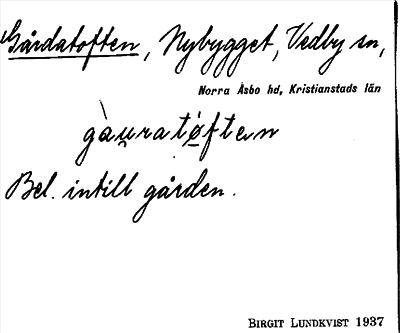 Gårdatoften, Nybygget, Vedby sn,
Norra Åsbo hd, Kristianstads län
gàu̯ratǿften
Bel. intill gården.
BIRGIT LUNDKVIST 1937